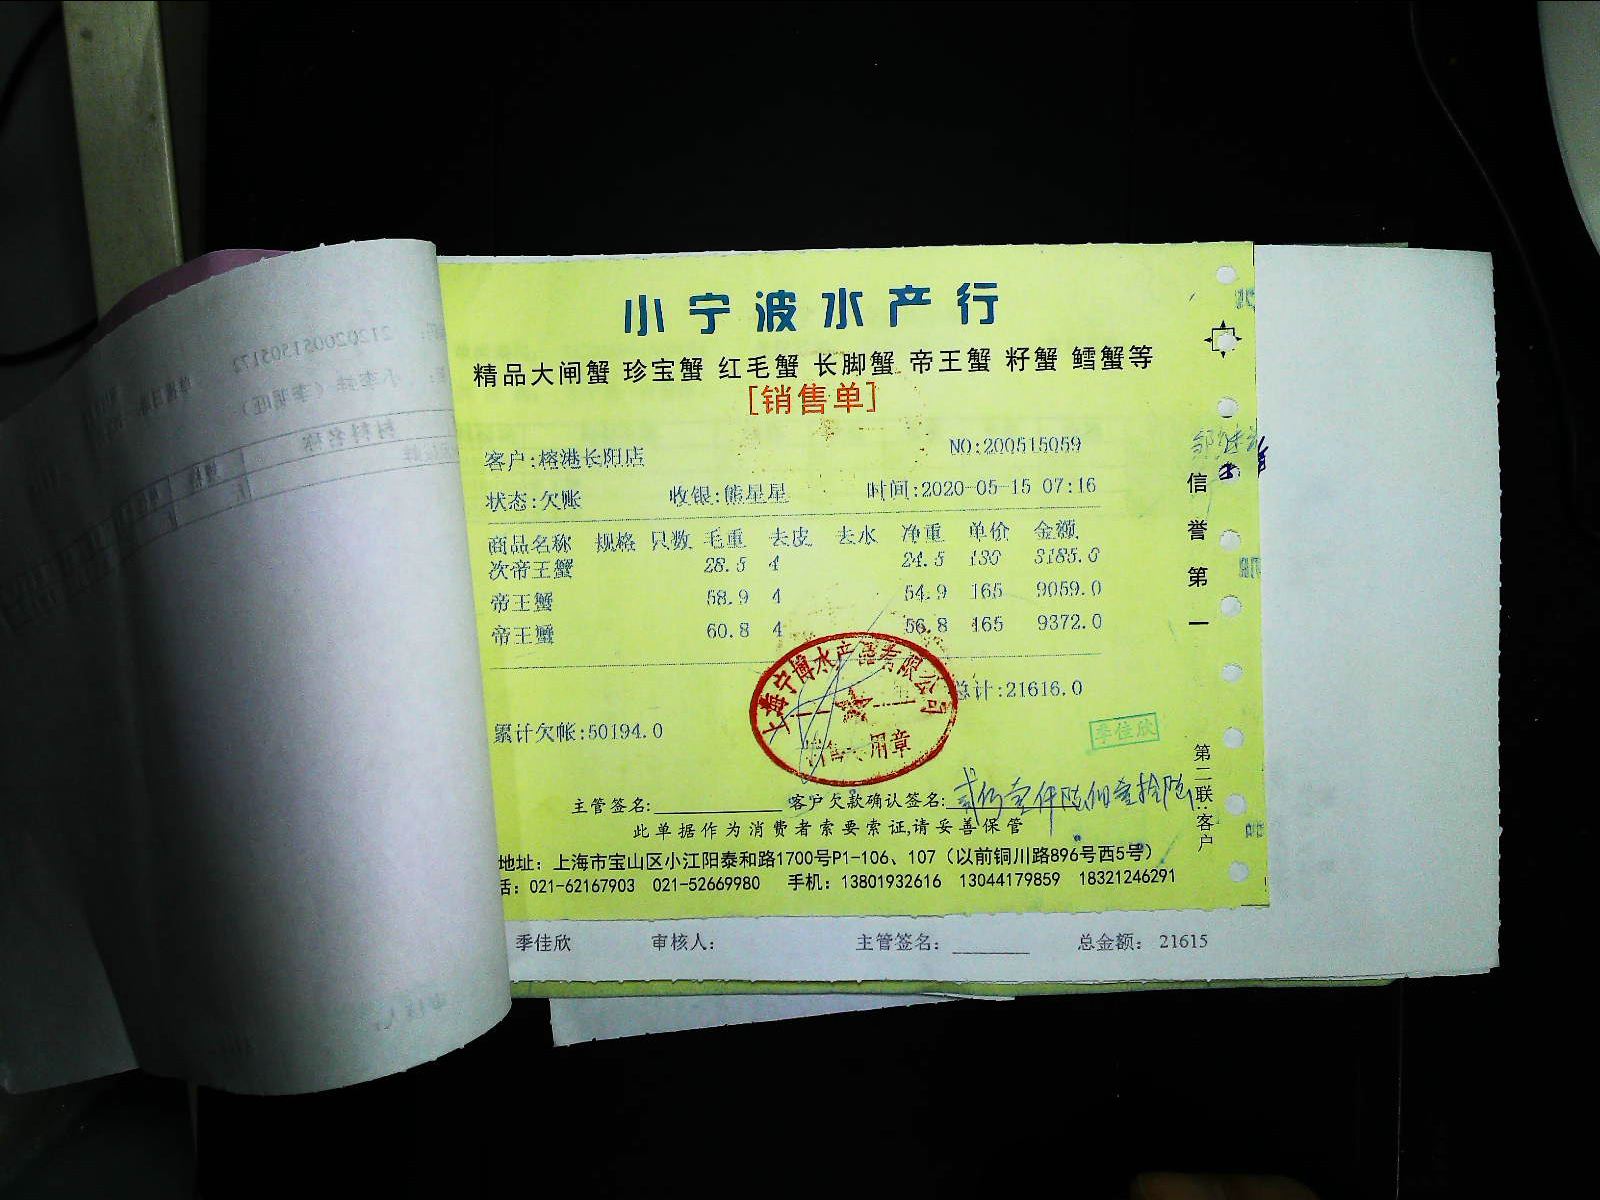 小宁波水产行
精品大闸蟹 珍宝蟹 红毛蟹 长脚蟹 帝王蟹 籽蟹 鳕蟹等
[销售单]
客户:榕港长阳店 NO:200515059
状态:欠账 收银:熊星星 时间:2020-05-15 07:16
商品名称 规格 只数 毛重 去皮 去水 净重 单价 金额
次帝王蟹 28.5 4 24.5 130 3185.0
帝王蟹 58.9 4 54.9 165 9059.0
帝王蟹 60.8 4 56.8 165 9372.0
总计:21616.0
累计欠帐:50194.0
上海宁博水产品有限公司
用章
季佳欣
主管签名: 客户欠款确认签名:
此单据作为消费者索要索证,请妥善保管
地址: 上海市宝山区小江阳泰和路1700号P1-106、107 (以前铜川路896号西5号)
话: 021-62167903 021-52669980 手机: 13801932616 13044179859 18321246291
信誉第一
第二联:客户
季佳欣 审核人: 主管签名: 总金额: 21615